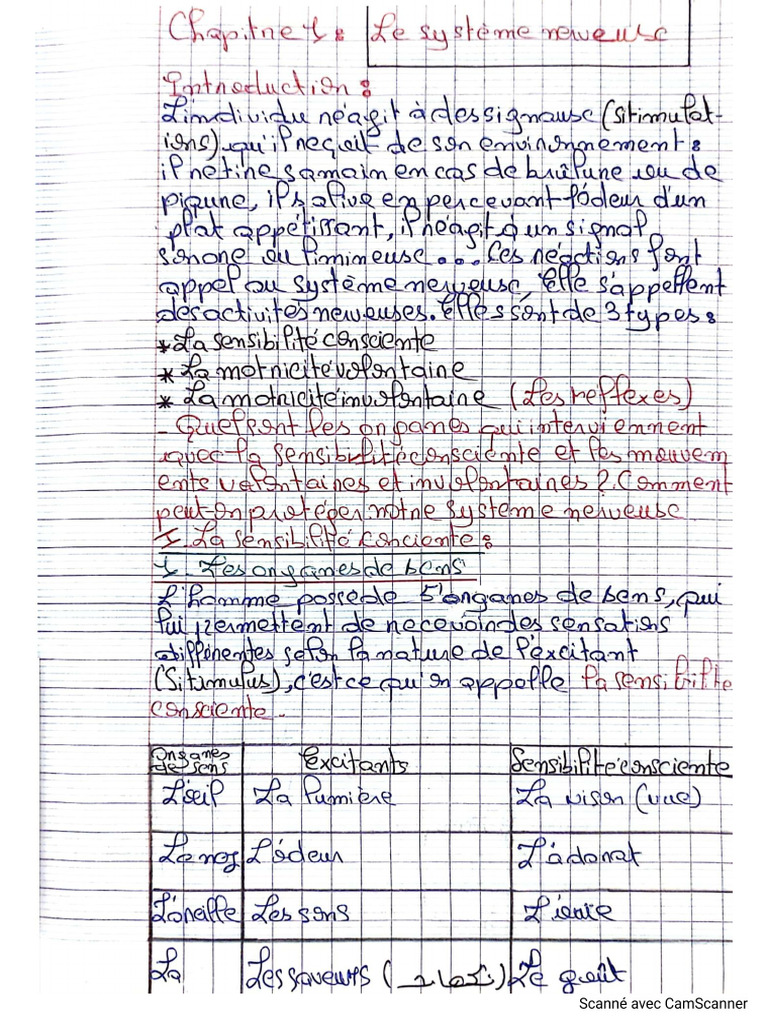 Chapitre 1 : Le système nerveuse
Introduction :
L'individu réagit à des signause (Stimulat-
ions) qu'il reçoit de son environnement :
il retire sa main en cas de brûlune ou de
piqune, il salive en percevant l'odeur d'un
plat appétissant, il réagit à un signal
sonone ou lumineuse... Ces réactions font
appel au système nerveuse, Elle s'appellent
des activités nerveuses. Elles sont de 3 types :
* La sensibilité consciente
* La motricité volontaine
* La motricité involontaine (Les reflexes)
- Quel sont les organes qui interviennent
avec la sensibilité consciente et les mouvem
ents volontaines et involontaines ? Comment
peut-on protéger notre système nerveuse
I - La sensibilité conciente :
1 - Les organes de sens
L'homme possède 5 organes de sens, qui
lui permettent de recevoin des sensations
différentes selon la nature de l'excitant
(Stimulus), c'est ce qu'on appelle la sensibilité
consciente -
Organes de sens Excitants Sensibilité consciente
L'œil La lumière La vison (vue)
Le nez L'odeur L'adorat
L'oreille Les sons L'ouïe
La Les saveurs ( ) Le goût
Scanné avec CamScanner